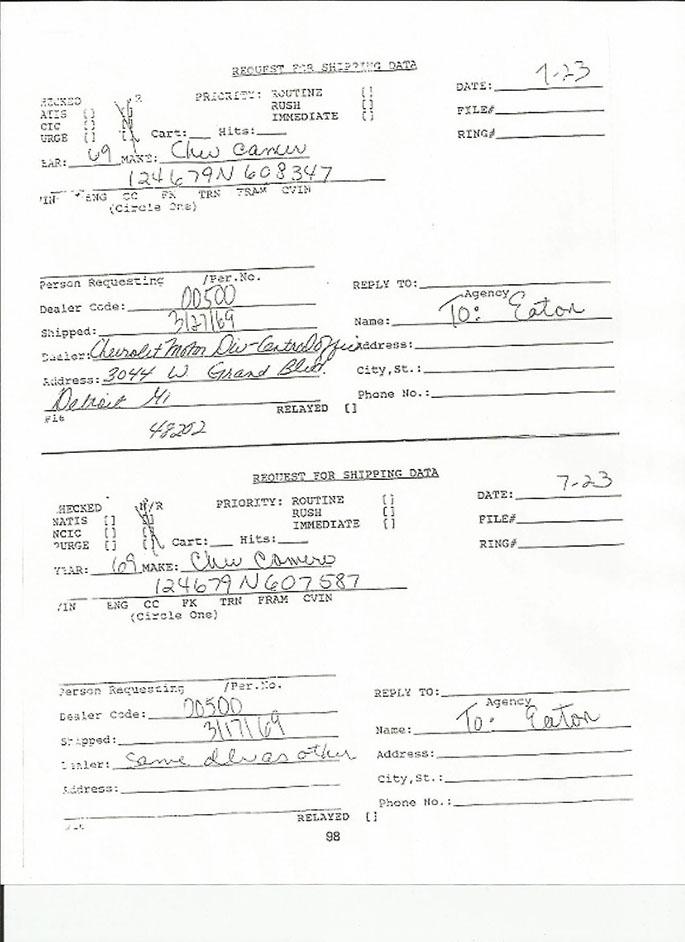 REQUEST FOR SHIPPING DATA
DATE: 7-23
HECKED N/R PRIORITY: ROUTINE []
ATIS [] RUSH [] FILE#
CIC [] IMMEDIATE []
URGE [] [] Cart: Hits: RING#
EAR: 69 MAKE: Chev Camero
124679N608347
VIN ENG CC FK TRN FRAM CVIN
(Circle One)
Person Requesting /Per.No. REPLY TO:
Agency
Dealer Code: 00500
Name: To: Eaton
Shipped: 3/27/69
Dealer: Chevrolet Motor Div-Central Office Address:
Address: 3044 W Grand Blvd. City,St.:
Detroit Mi Phone No.:
RELAYED []
48202
REQUEST FOR SHIPPING DATA
DATE: 7-23
HECKED N/R PRIORITY: ROUTINE []
NATIS [] RUSH [] FILE#
NCIC [] IMMEDIATE []
PURGE [] [] Cart: Hits: RING#
YEAR: 69 MAKE: Chev Camero
124679N607587
VIN ENG CC FK TRN FRAM CVIN
(Circle One)
Person Requesting /Per.No. REPLY TO:
Agency
Dealer Code: 00500
Name: To: Eaton
Shipped: 3/17/69
Dealer: Same dlr as other Address:
Address: City,St.:
Phone No.:
RELAYED []
98